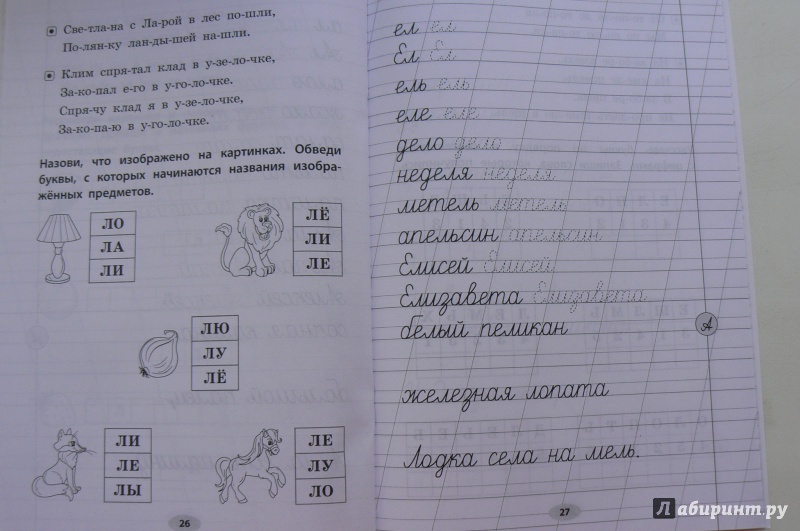 Све-тла-на с Ла-рой в лес по-шли,
По-лян-ку лан-ды-шей на-шли.
Клим спря-тал клад в у-зе-ло-чке,
За-ко-пал е-го в у-го-ло-чке.
Спря-чу клад я в у-зе-ло-чке,
За-ко-па-ю в у-го-ло-чке.
Назови, что изображено на картинках. Обведи
буквы, с которых начинаются названия изобра-
жённых предметов.
ЛО
ЛА
ЛИ
ЛЁ
ЛИ
ЛЕ
ЛЮ
ЛУ
ЛЁ
ЛИ
ЛЕ
ЛЫ
ЛЕ
ЛУ
ЛО
26
ел ел
Ел Ел
ель ель
еле еле
дело дело
неделя неделя
метель метель
апельсин апельсин
Елисей Елисей
Елизавета Елизавета
белый пеликан
А
железная лопата
Лодка села на мель.
27
Лабиринт.ру